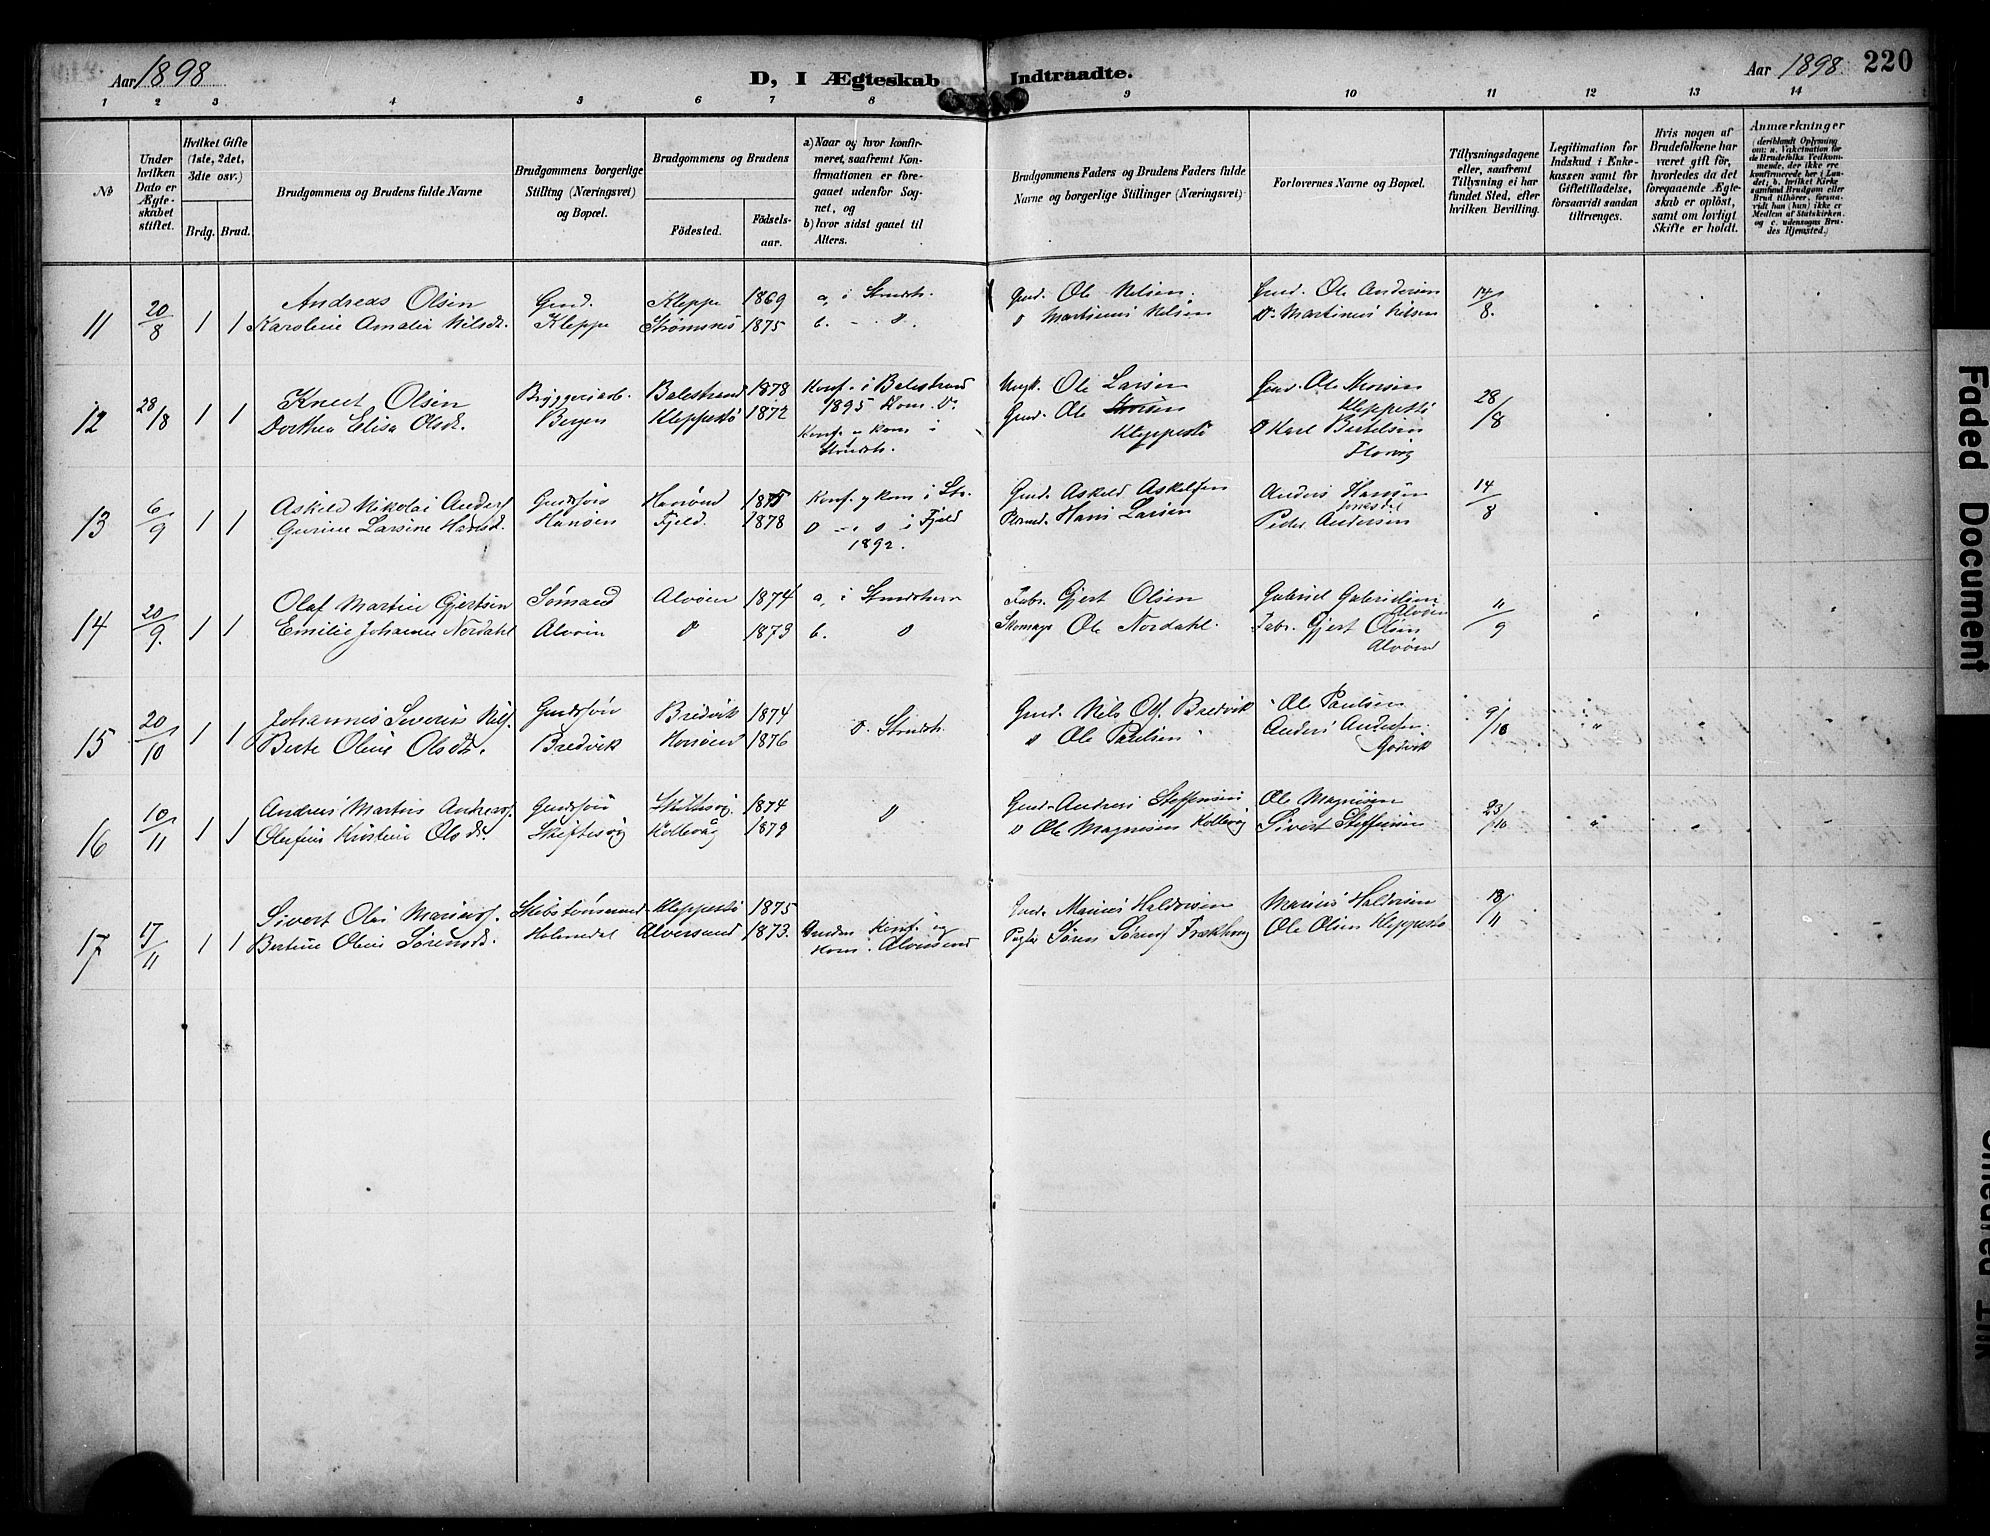 Aar 1898
D, I Ægteskab Indtraadte.
Aar 1898
220
1 2 3 4 5 6 7 8 9 10 11 12 13 14
No
Under hvilken Dato er Ægteskabet stiftet.
Hvilket Gifte (1ste, 2det, 3die osv.)
Brdg. Brud.
Brudgommens og Brudens fulde Navne
Brudgommens borgerlige Stilling (Næringsvei) og Bopæl.
Brudgommens og Brudens
Födested.
Födselsaar.
a) Naar og hvor konfirmeret, saafremt Konfirmationen er foregaaet udenfor Sognet, og
b) hvor sidst gaaet til Alters.
Brudgommens Faders og Brudens Faders fulde Navne og borgerlige Stillinger (Næringsvei)
Forlovernes Navne og Bopæl.
Tillysningsdagene eller, saafremt Tillysning ei har fundet Sted, efter hvilken Bevilling.
Legitimation for Indskud i Enkekassen samt for Giftetilladelse, forsaavidt saadan tiltrænges.
Hvis nogen af Brudefolkene har været gift för, hvorledes da det foregaaende Ægteskab er oplöst, samt om lovligt Skifte er holdt.
Anmærkninger (deriblandt Oplysning om: a. Vakcination for de Brudefolks Vedkommende, der ikke ere konfirmerede her i Landet; b. hvilket Kirkesamfund Brudgom eller Brud tilhörer, forsaavidt han (hun) ikke er Medlem af Statskirken, og c. udensogns Brudes Hjemsted.)
11 20/8 1 1 Andreas Olsen Gmd. Kleppe 1869 a, i Strudsh. Gmd. Ole Nilsen. Gmd. Ole Andersen 14/8.
Karoline Amalia Nilsdr. Kleppe Strømsnes 1875 b. - Martinus Nilsen Do Martinus Nilsen
12 28/8 1 1 Knut Olsen Bryggeriarb. Balestrand 1878 Konf. i Balestrand Ole Larsen Gmd. Ole 28/8
Dorthea Elisa Olsdr. Bergen Kleppestø 1872 1895 Kom. Do Gmd. Ole Kleppestø
Konf. o kom i Kleppestø Karl Bertelsen
Strudsh. Florvåg
13 6/9 1 1 Askild Nikolai Anders. Gmdsøn 1875 Konf. og kom i Str. Gmd. Askild Askildsen Anders Hansen 14/8
Gurine Larsine Hansd. Hanøen Fjeld. 1878 i Fjeld Hans Larsen Peder Andersen
1892.
14 20/9. 1 1 Olaf Martin Gjertsen Sømand Alvøen 1874 a, i Strudshavn Fabr. Gjert Olsen Gabriel Gabrielsen 11/9
Alvøen
Emilie Johanne Nordahl Alvøen 1873 b. Skomager Ole Nordahl. Fabr. Gjert Olsen
Alvøen
15 20/10 1 1 Johannes Severin Nils. Gmdsøn Bredvik 1874 Strudsh. Gmd. Nils Ols. Bredvik Ole Paulsen 9/10
Berte Oline Olsdr. Bredvik 1876 Ole Paulsen Anders Anders.
Godvik
16 10/11 1 1 Andreas Martin Andreas. Gmdsøn 1874 Gmd. Andreas Steffensen Ole Magnesen 23/10
Olufine Kristine Olsdr. Skiftesvig Kollevåg 1879 Ole Magnesen Kollevig Sivert Steffensen
17 17/11 1 1 Sivert Olai Marius. Skibstømmermd. Kleppestø 1875 Gmd. Marius Haldorsen Marius Haldorsen 13/11
Bertine Oline Sørensdr. Holmedal Alversund 1873. Bruden Konf. og Søren Sørens. Ole Olsen Kleppestø
Kom. Alversund
Faded Document
Smeared Ink